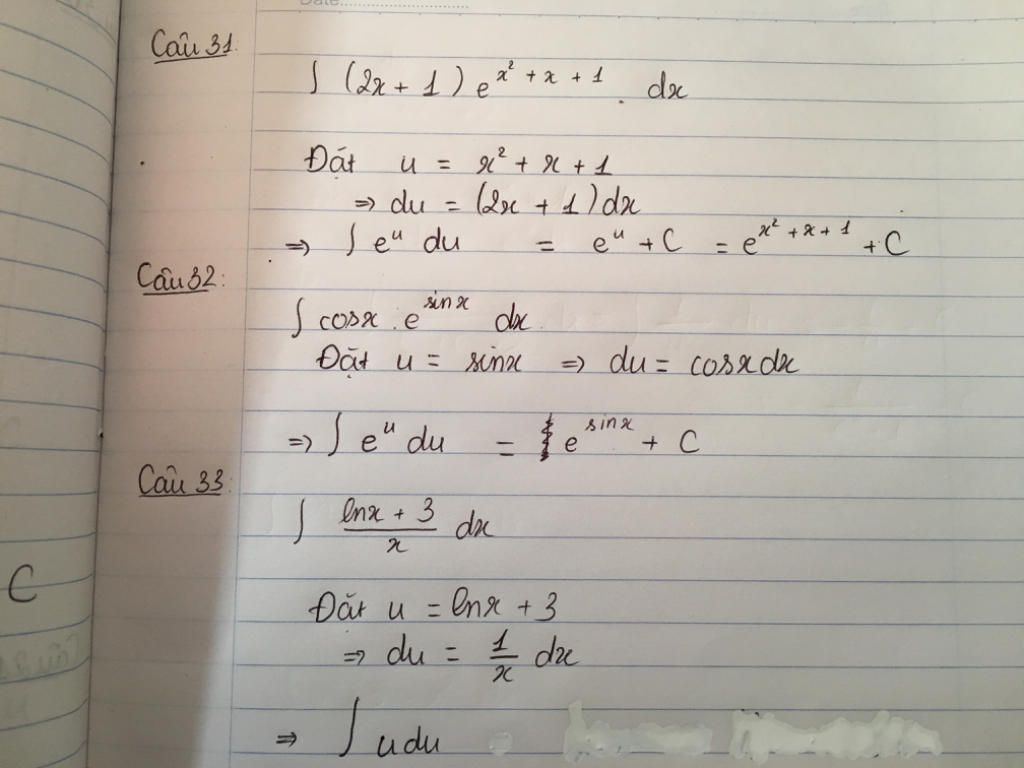 Date
Câu 31:
∫ (2x + 1) e^{x² + x + 1} . dx
Đặt u = x² + x + 1
⇒ du = (2x + 1) dx
⇒ ∫ e^u du = e^u + C = e^{x² + x + 1} + C
Câu 32:
∫ cosx . e^{sinx} dx
Đặt u = sinx ⇒ du = cosxdx
⇒ ∫ e^u du = e^{sinx} + C
Câu 33:
∫ \frac{lnx + 3}{x} dx
C
Đặt u = lnx + 3
⇒ du = \frac{1}{x} dx
⇒ ∫ u du